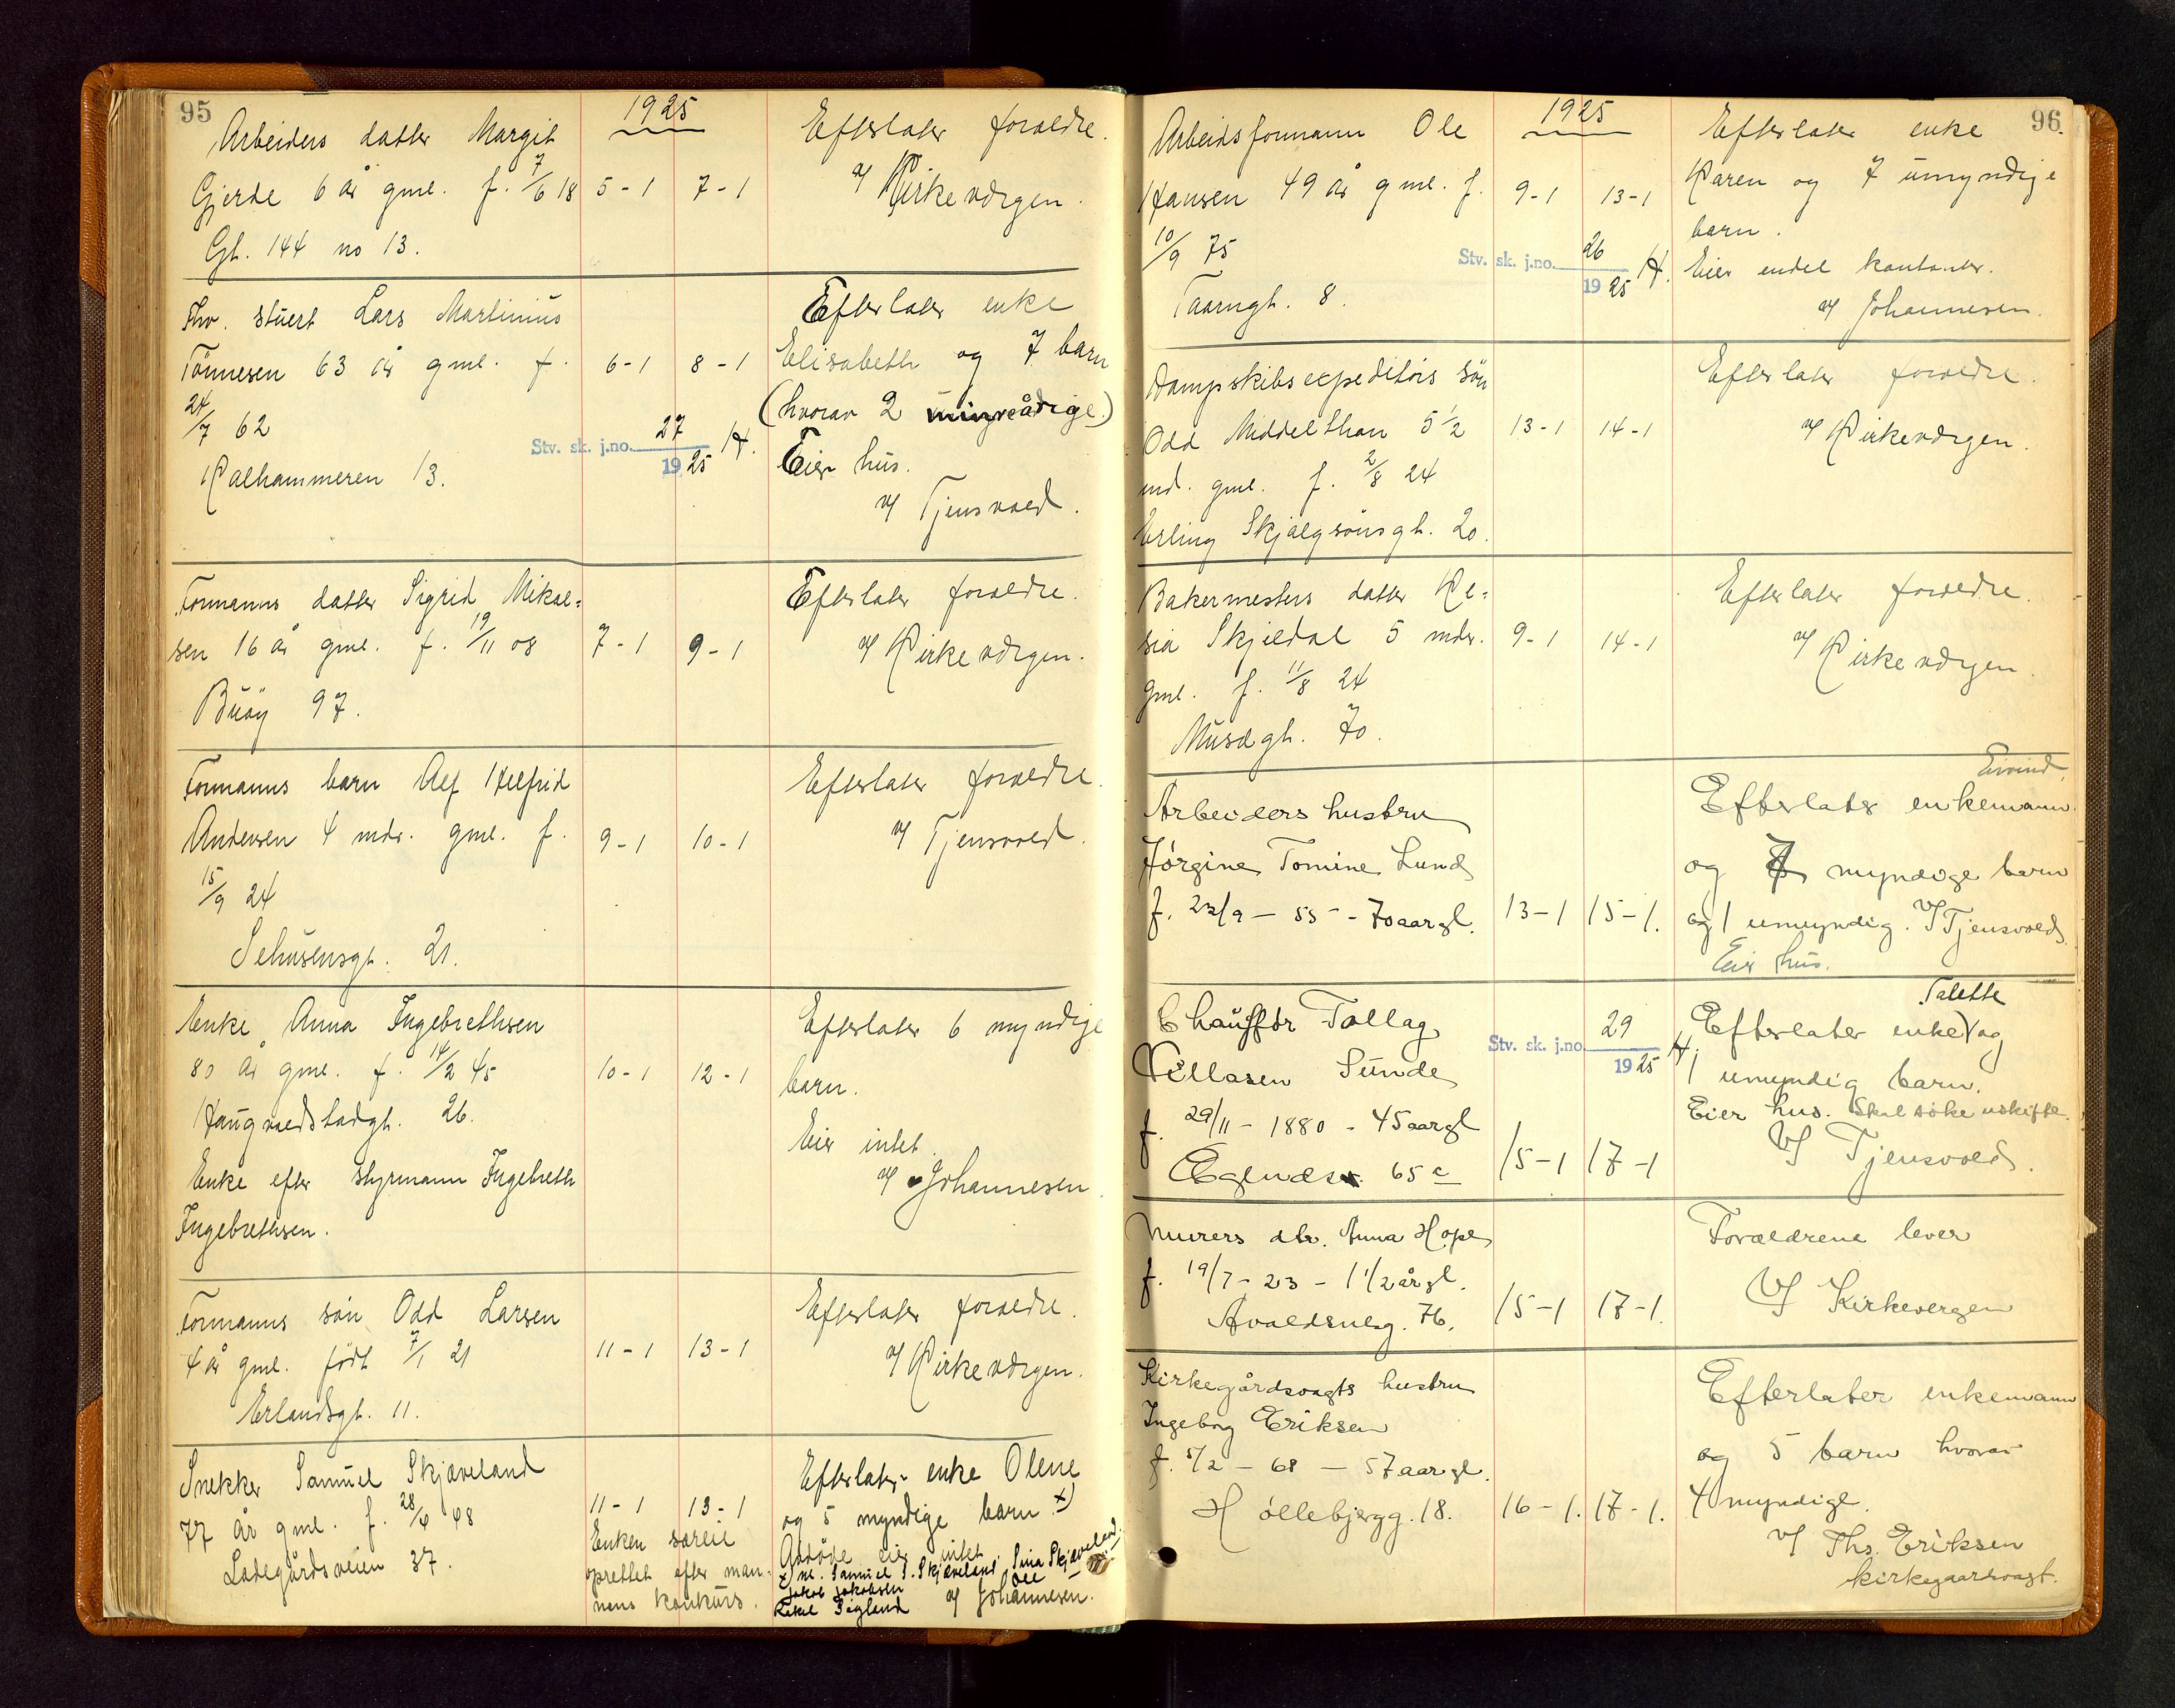 95
1925
Arbeiders datter Margit
Gjerde 6 år gml. f. 7/6 18
5-1 7-1
Gt. 144 no 13.
Efterlater foreldre.
v/ Kirkevergen.
Fhv. stuert Lars Martinius
Tönnesen 63 år gml. f.
24/7 62
6-1 8-1
Kalhammeren 13.
Stv. sk. j.no. 27 1925 H.
Efterlater enke
Elisabeth og 7 barn
(hvorav 2 mindreårige.)
Eier hus.
v/ Tjensvold.
Formanns datter Sigrid Mikal-
sen 16 år gml. f. 19/11 08
7-1 9-1
Buöy 97.
Efterlater foreldre.
v/ Kirkevergen.
Formanns barn Alf Helfrid
Andersen 4 mdr. gml. f.
15/9 24
9-1 10-1
Sehusensgt. 21.
Efterlater foreldre.
v/ Tjensvold.
Enke Anna Ingebrethsen
80 år gml. f. 14/2 45
10-1 12-1
Haugvaldstadgt. 26.
Enke efter styrmann Ingebreth
Ingebrethsen.
Efterlater 6 myndige
barn.
Eier intet.
v/ Johannesen.
Formanns sön Odd Larsen
4 år gml. födt 7/1 21
11-1 13-1
Erlandsgt. 11.
Efterlater foreldre.
v/ Kirkevergen.
Snekker Samuel Skjæveland
77 år gml. f. 28/4 48
Ladegårdsveien 37.
11-1 13-1
Enken særeie
oprettet efter man-
nens konkurs.
Efterlater enke Olene
og 5 myndige barn x)
Avdöde eier intet.
x) nl. Samuel S. Skjæveland, Sina Skjæveland,
Jakob Jakobsen
Rakel Sigland
v/ Johannesen.
96
1925
Arbeidsformann Ole
Hansen 49 år gml. f.
10/9 75
9-1 13-1
Taarngt. 8.
Stv. sk. j.no. 26 1925 H.
Efterlater enke
Karen og 7 umyndige
barn.
Eier endel kontanter.
v/ Johannesen.
Dampskibsexpeditörs sön
Odd Middelthon 5 1/2
md. gml. f. 2/8 24
13-1 14-1
Erling Skjalgsönsgt. 20.
Efterlater foreldre.
v/ Kirkevergen.
Bakermesters datter Kl-
sia Skjeldal 5 mdr.
gml. f. 11/8 24
9-1 14-1
Muségt. 70.
Efterlater foreldre.
v/ Kirkevergen.
Arbeiders hustru
Jörgine Tomine Lund
f. 23/9 - 55 - 70 aar gl.
13-1 15-1.
Eivind.
Efterlater enkemann
og 7 myndige barn
og 1 umyndig. v/ Tjensvold.
Eier hus.
Chaufför Tollag
Villasen Sunde
f. 29/11 - 1880 - 45 aar gl
Egendsv. 65 c
15-1 17-1
Stv. sk. j.no. 29 1925 H.
Talette
Efterlater enke og
1 umyndig barn.
Eier hus. Skal söke uskifte.
v/ Tjensvold.
Murers dtr. Anna Hope
f. 19/7 - 23 - 1 1/2 år gl.
Avaldsneg. 76.
15-1 17-1.
Forældrene lever
v/ Kirkevergen
Kirkegårdsvagts hustru
Ingeborg Eriksen
f. 5/2 - 68 - 57 aar gl.
Höllebjergg. 18.
16-1. 17-1.
Efterlater enkemann
og 5 barn hvorav
4 myndige.
v/ Ths. Eriksen
kirkegaardsvagt.